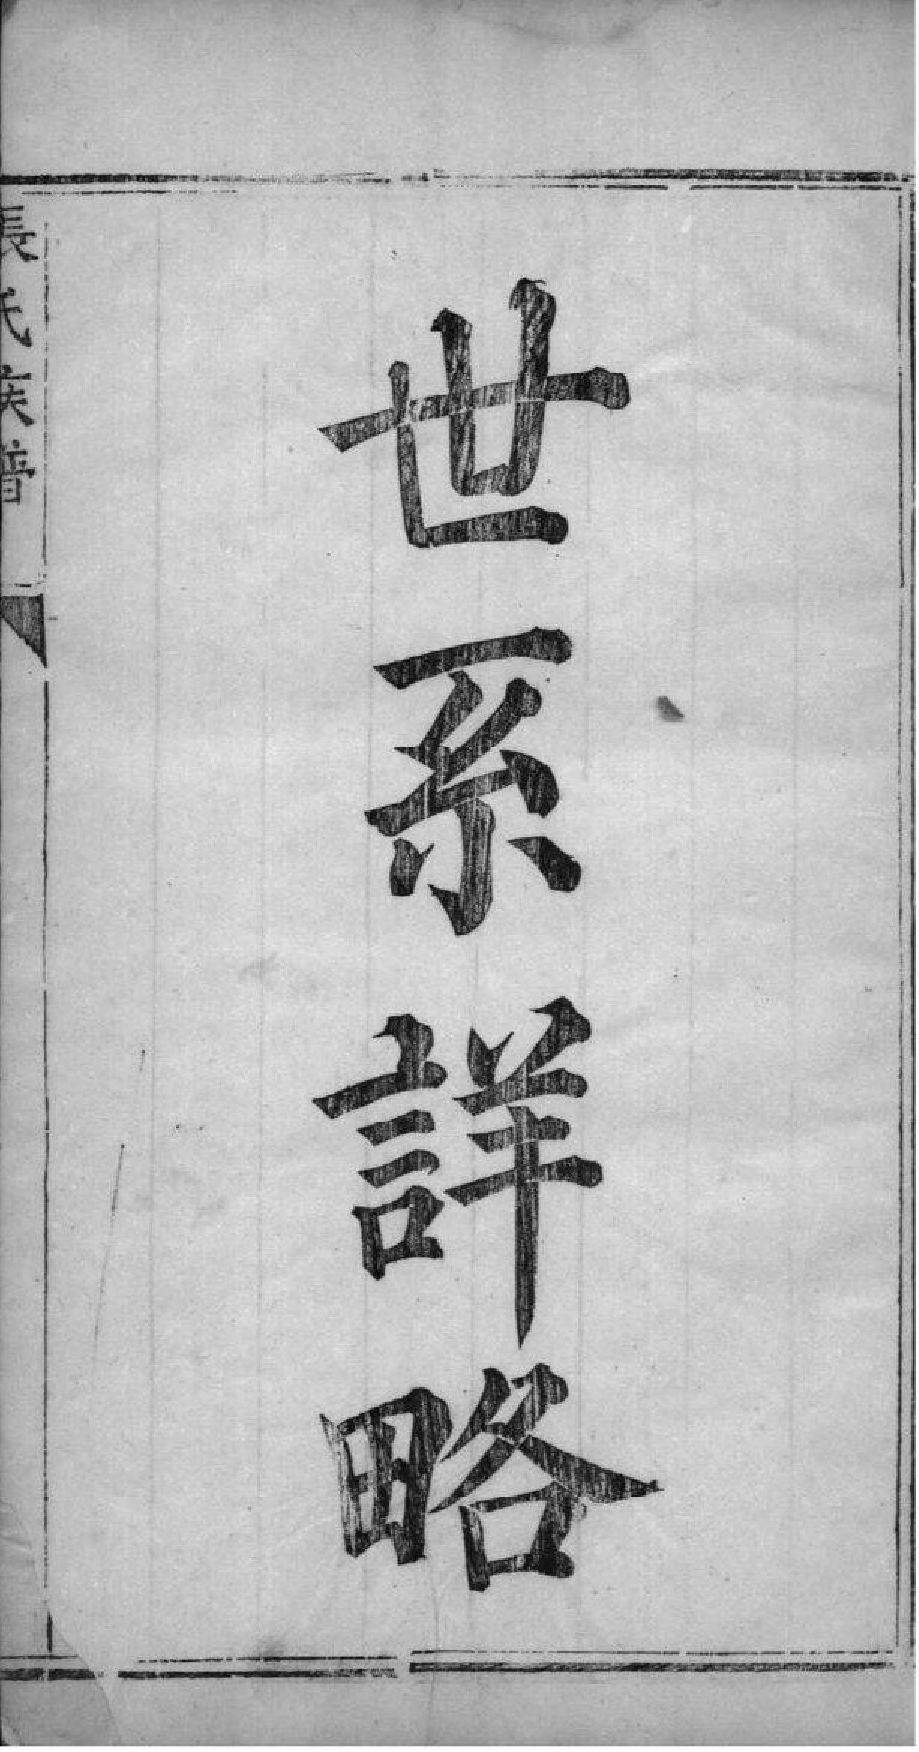 世系詳略
氏族譜